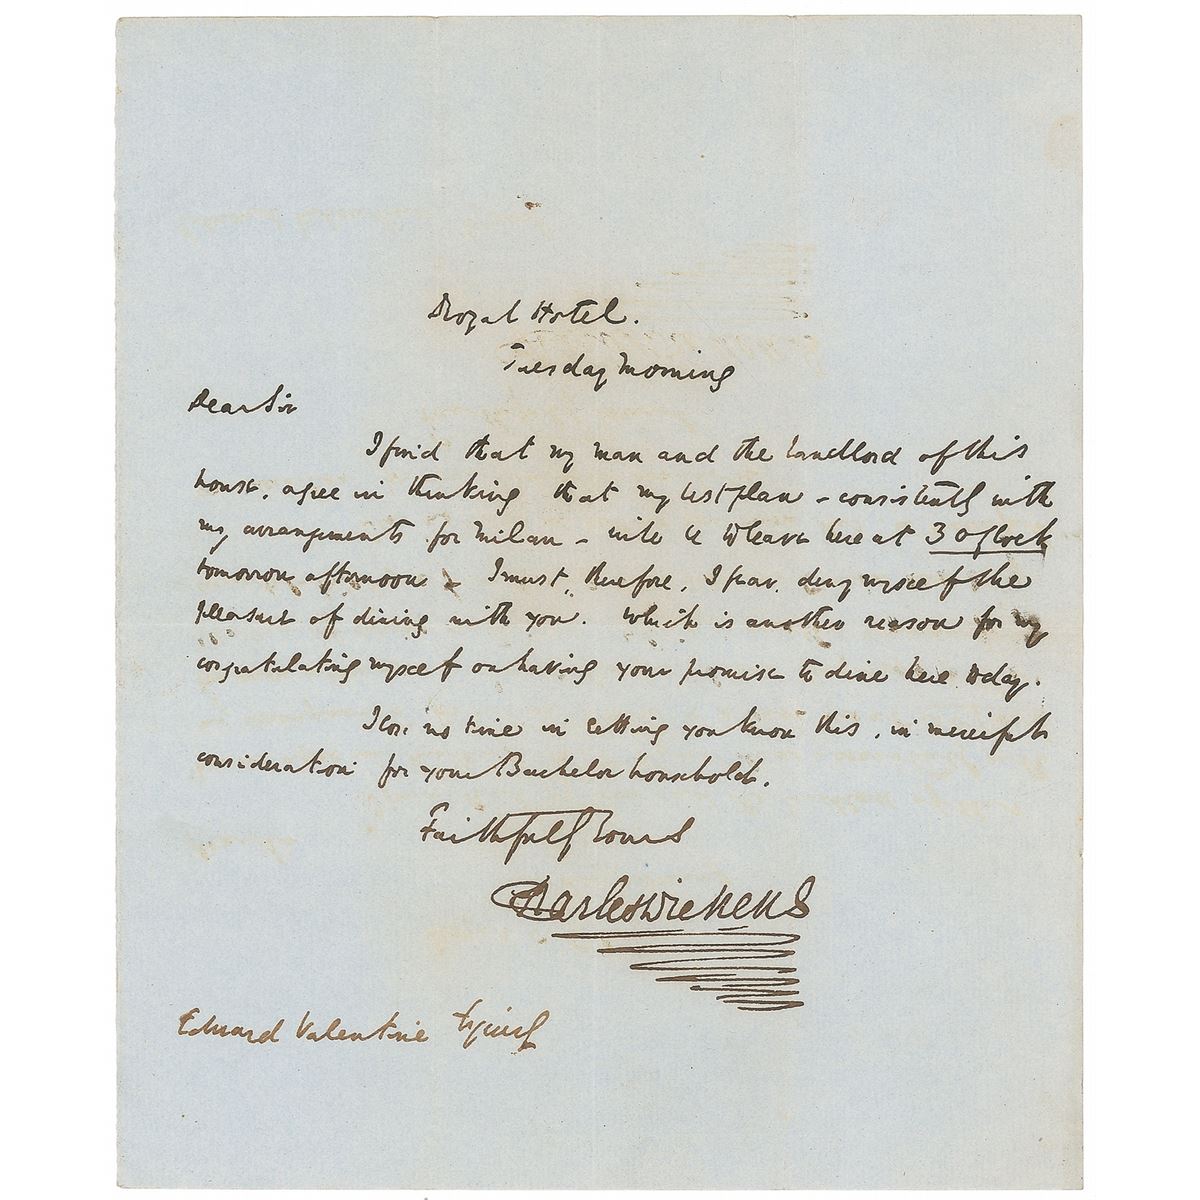 Royal Hotel.
Tuesday Morning
Dear Sir
I find that my man and the landlord of this
house, agree in thinking that my best plan - consistently with
my arrangements for Milan - will be to leave here at 3 o'Clock
tomorrow afternoon - I must, therefore, I fear, deny myself the
pleasure of dining with you. Which is another reason for my
congratulating myself on having your promise to dine here today.
I lose no time in letting you know this, in merciful
consideration for your Bachelor household.
Faithfully Yours
Charles Dickens
Edward Valentine Esquire